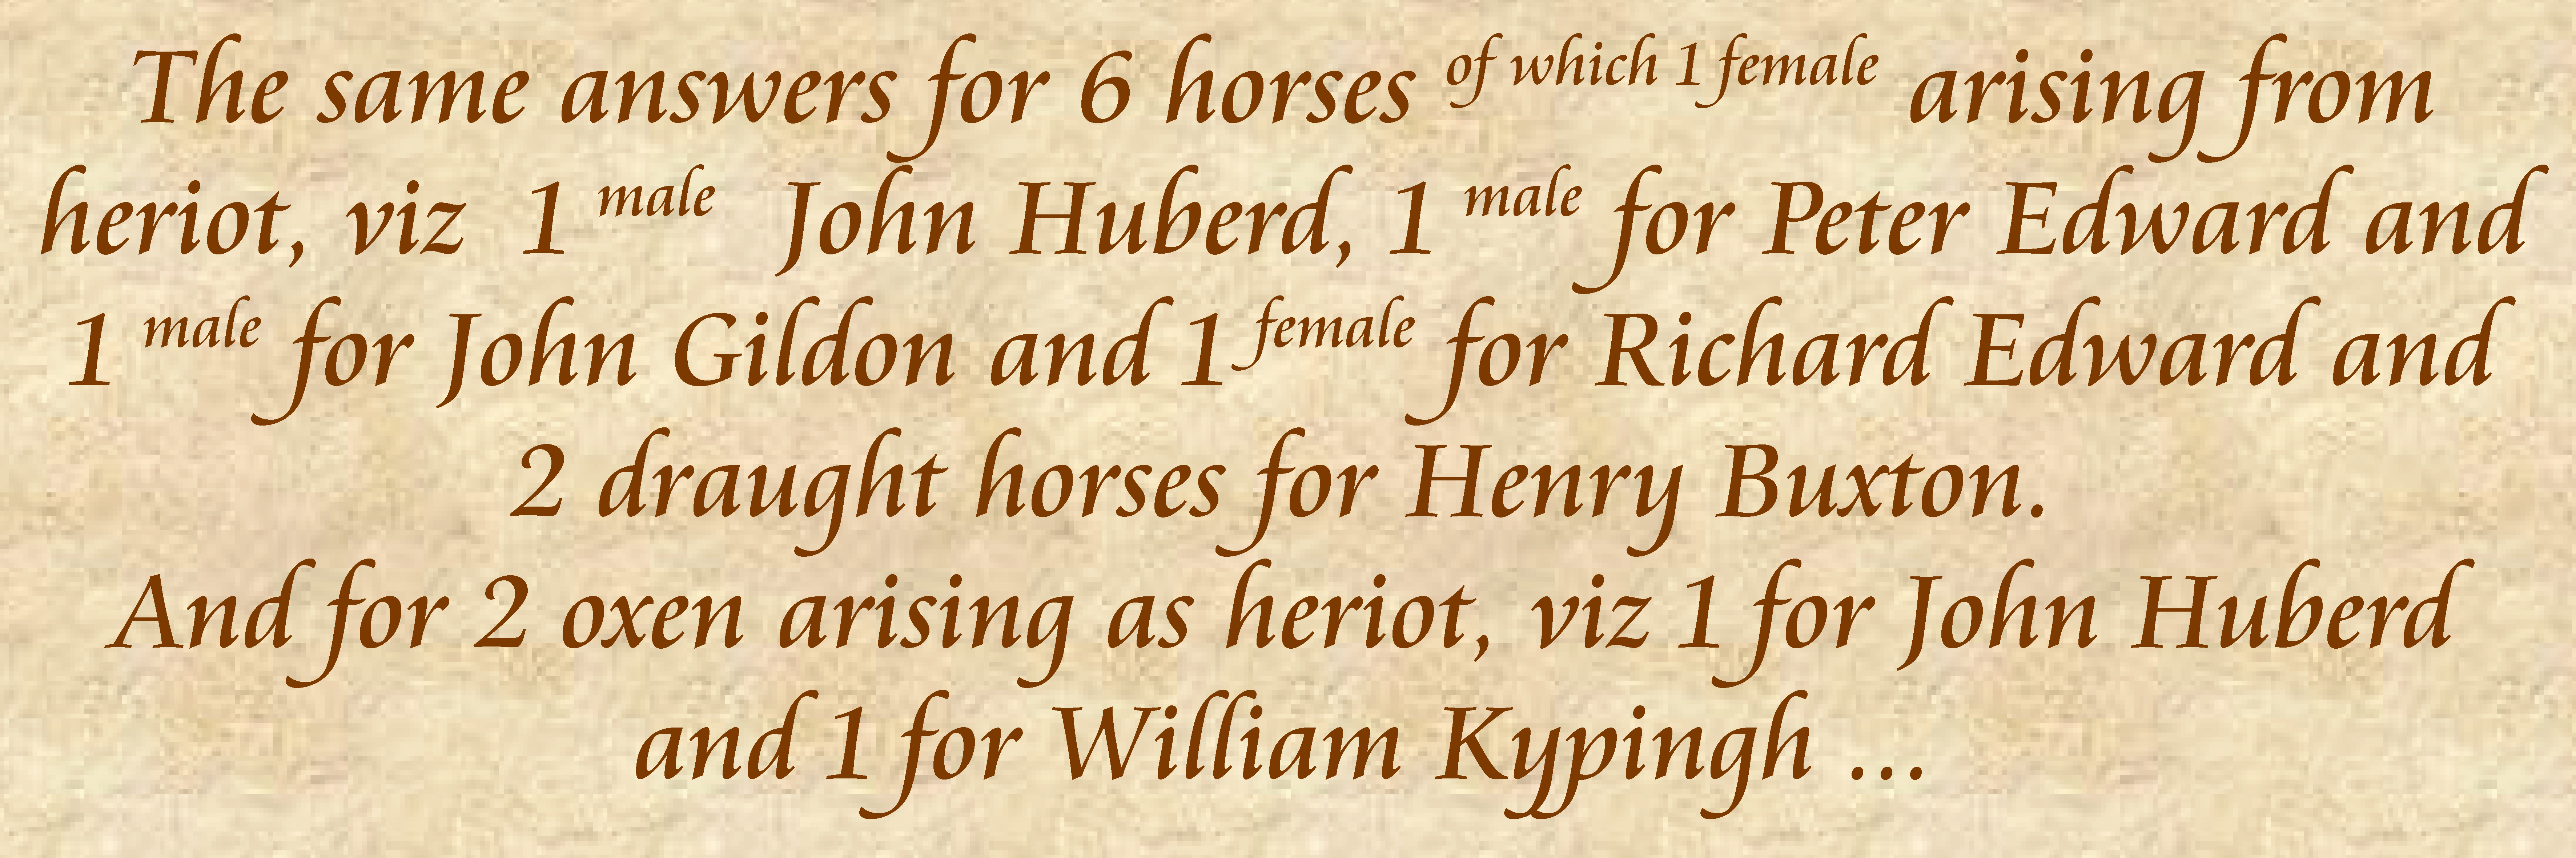 The same answers for 6 horses of which 1 female arising from
heriot, viz 1 male John Huberd, 1 male for Peter Edward and
1 male for John Gildon and 1 female for Richard Edward and
2 draught horses for Henry Buxton.
And for 2 oxen arising as heriot, viz 1 for John Huberd
and 1 for William Kypingh ...